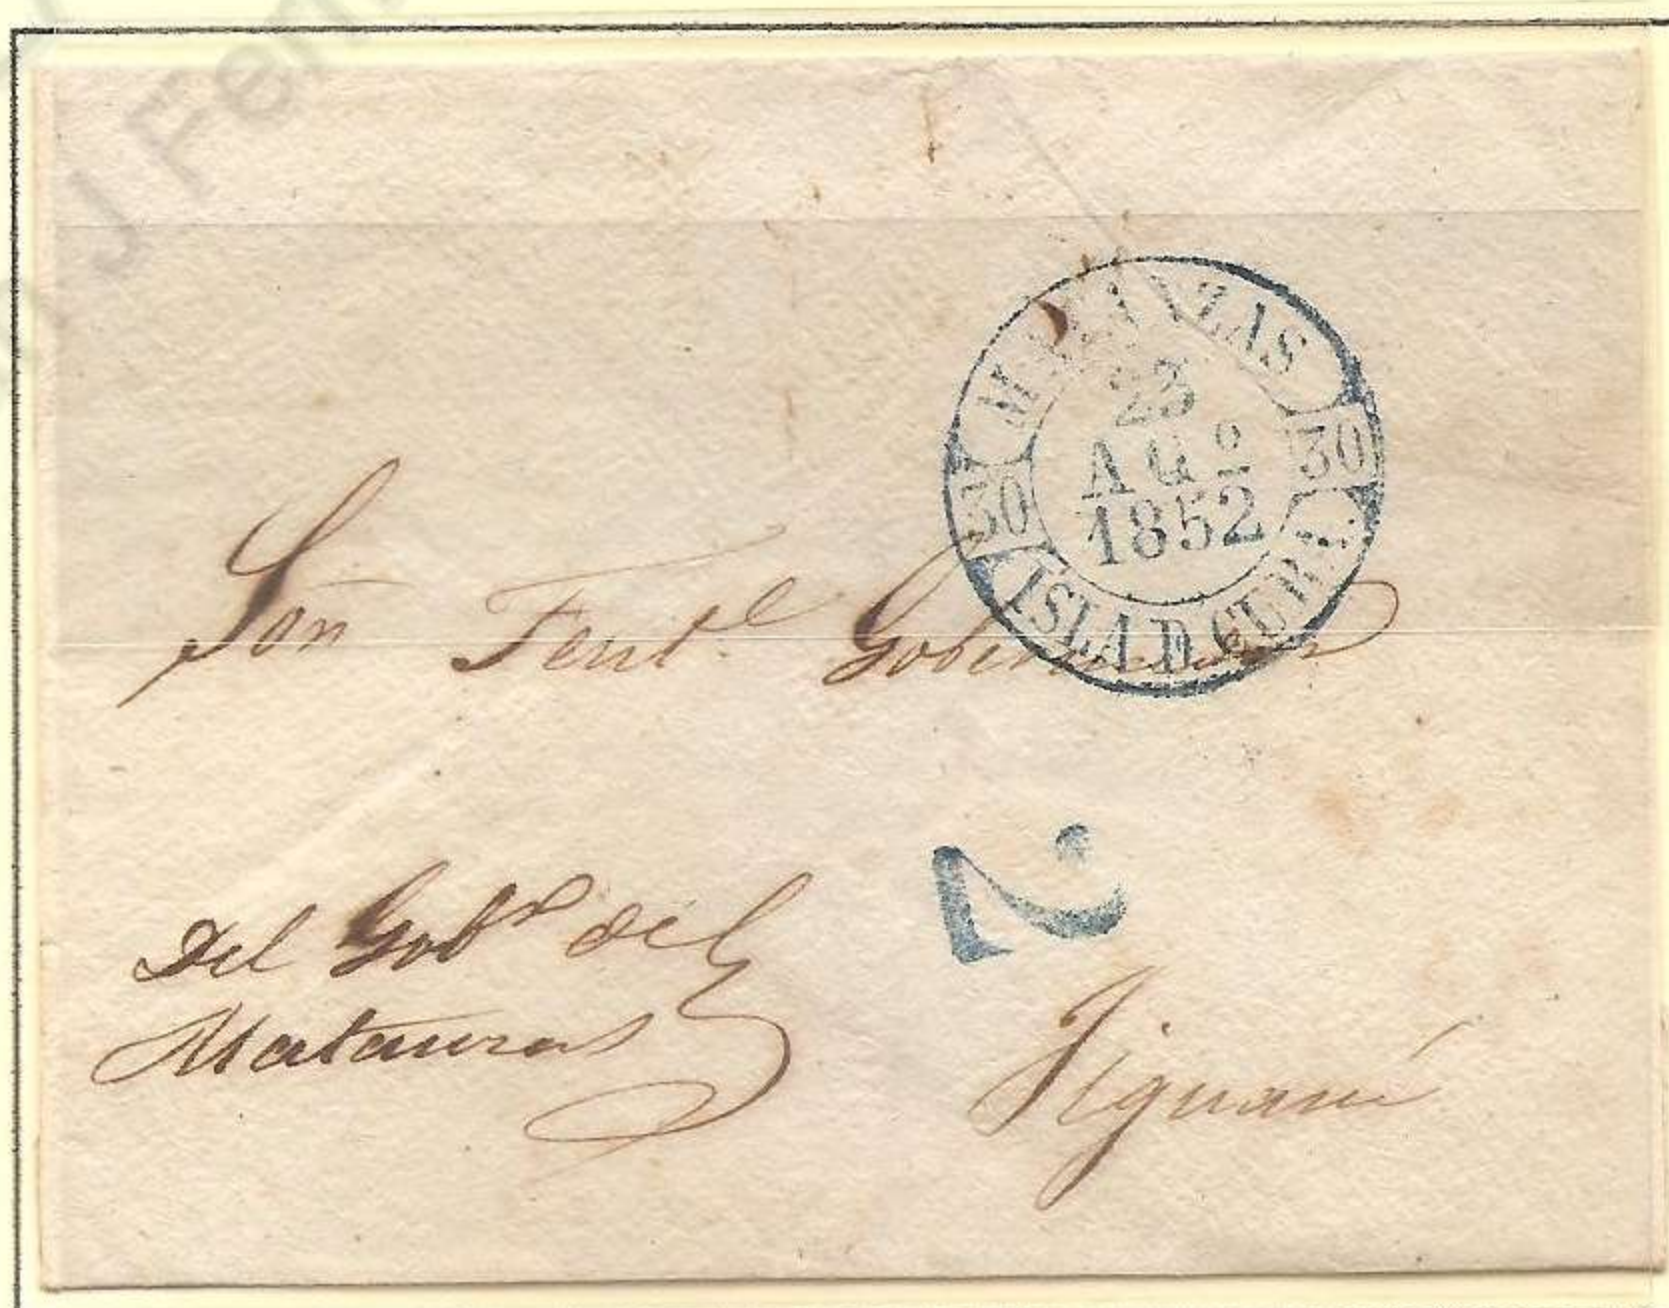 J Fern
MATANZAS
23
AGº
1852
30 30
ISLA D CUBA
Sor Tentᵉ Gobernador
2
Del Gobʳ de
Matanzas
Jiguaní